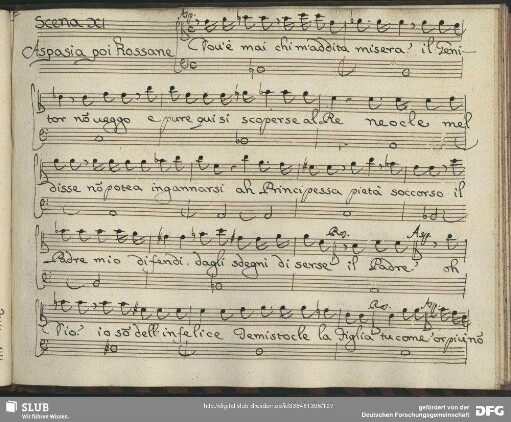 Scena XI
Asp.
Aspasia poi Rossane
Dou'è mai chi m'addita misera! il Geni-
tor nõ ueggo e pure qui si scoperse al Re neocle mel
disse nõ potea ingannarsi ah Principessa pietà soccorso il
Ros. Asp.
Padre mio difendi. dagli sdegni di serse il Padre! oh
Ros. Asp.
Dio! io sõ dell'infelice Temistocle la Figlia tu come! or più nõ
SLUB
Wir führen Wissen.
gefördert von der
Deutschen Forschungsgemeinschaft
DFG